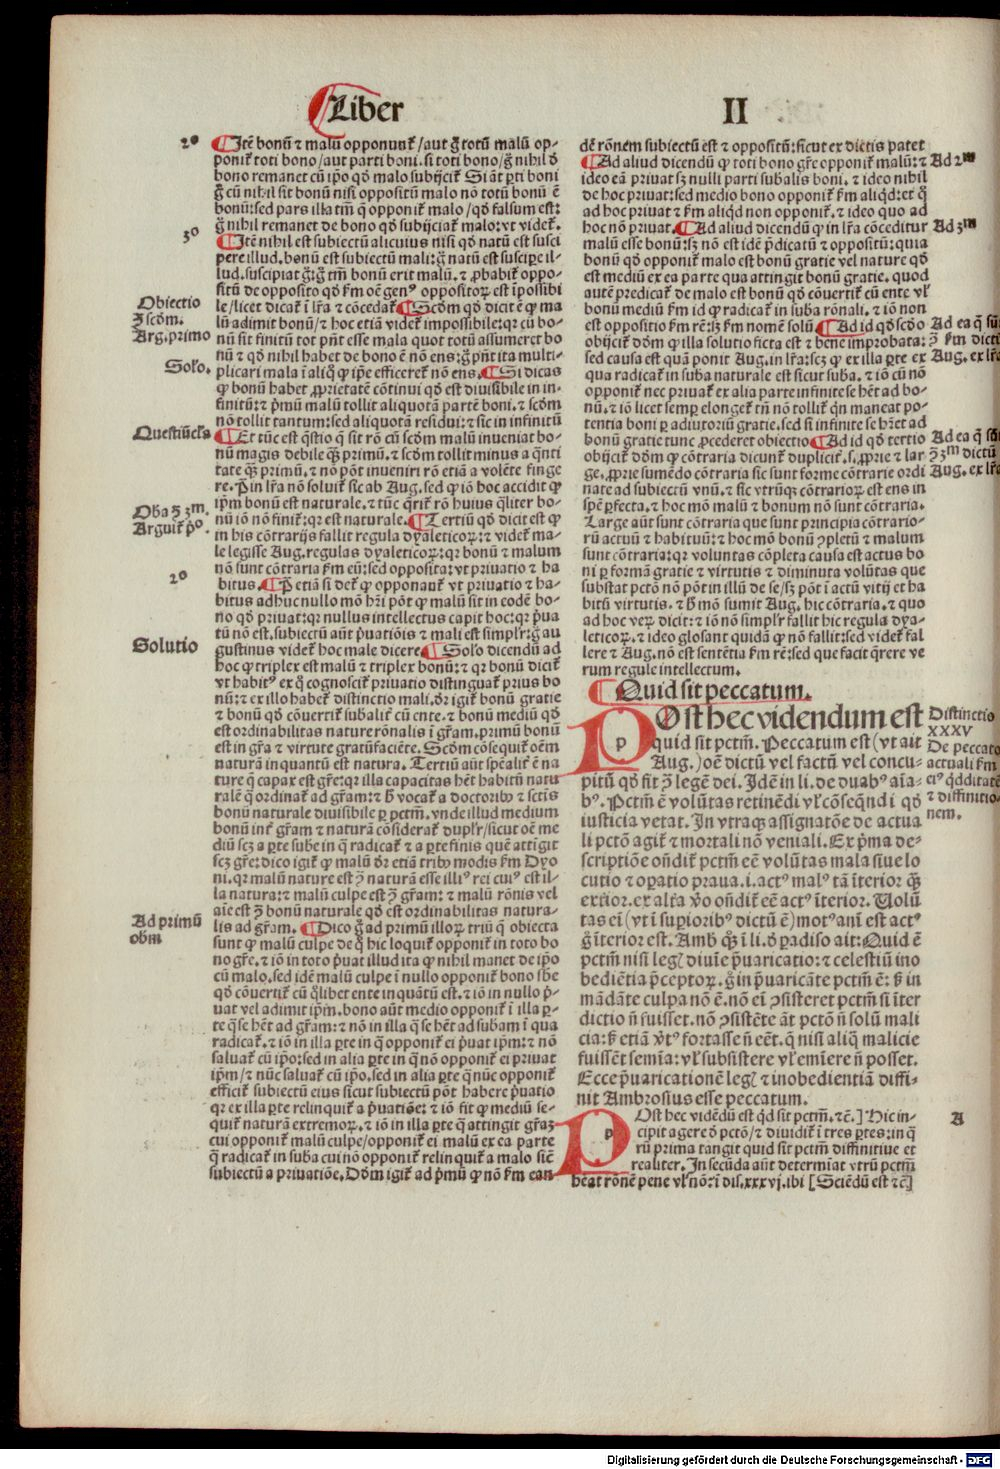 Liber II
2º
Itē bonū ⁊ malū opponunt᷒/aut g̊ totū malū op-
ponit᷒ toti bono/aut parti boni. si toti bono/g̊ nihil ð
bono remanet cū ip̄o qð malo subijcit᷒ Si āt ꝑti boni
g̊ cū nihil sit bonū nisi oppositū malo nō totū bonū ē
bonū: sed pars illa tm̄ q̄ opponit᷒ malo/qð falsum est:
g̊ nihil remanet de bono qð subijciat᷒ malo: vt videt᷒.
3º
Itē nihil est subiectū alicuius nisi qð natū est susci
pere illud. bonū est subiectū mali: g̊ natū est suscipe il-
lud. suscipiat g̊: g̊ tm̄ bonū erit malū. ⁊ ꝓbabit᷒ oppo-
sitū de opposito qð ẜm oē genꝰ oppositoꝝ est īpossibi
Obiectio
ɔ̄ scðm.
Arg. primo
le/licet dicat᷒ ī lr̄a ⁊ cōcedat᷒ Scðm qð dicit ē ꝙ ma
lū adimit bonū/⁊ hoc etiā videt᷒ impossibile: qꝛ cū bo-
nū sit finitū tot pn̄t esse mala quot totū assumeret bo
nū ⁊ qð nihil habet de bono ē nō ens: g̊ pn̄t ita multi-
Solo.
plicari mala ī aliq̄ ꝙ ip̄e efficeret᷒ nō ens. Si dicas
ꝙ bonū habet ꝓprietatē cōtinui qð est diuisibile in in-
finitū: ⁊ pͥmū malū tollit aliquotā partē boni. ⁊ scðm
nō tollit tantum: sed aliquotā residui: ⁊ sic in infinitū
Questiūcła
Et tūc est q̄stio q̄ sit rō cū scðm malū inueniat bo-
nū magis debile q̄ꝫ primū. ⁊ scðm tollit minus a q̄nti
tate q̄ꝫ primū. ⁊ nō pōt inueniri rō etiā a volēte finge
re. Pin lr̄a nō soluit᷒ sic ab Aug. sed ꝙ iō hoc accidit ꝙ
Oba ɔ̄ 3m.
Arguit᷒ pͦ.
ip̄m bonū est naturale. ⁊ tūc q̄rit᷒ rō huius q̄liter bo-
nū iō nō finit᷒: qꝛ est naturale. Tertiū qð dicit est ꝙ
in his cōtrarijs fallit regula dyaleticoꝝ: ⁊ videt᷒ ma-
le legisse Aug. regulas dyaleticoꝝ: qꝛ bonū ⁊ malum
nō sunt cōtraria ẜm eū: sed opposita: vt priuatio ⁊ ha
2º
bitus. P etiā si det᷒ ꝙ opponant᷒ vt priuatio ⁊ ha-
bitus adhuc nullo mō hr̄i pōt ꝙ malū sit in eodē bo-
no qð priuat: qꝛ nullus intellectus capit hoc: qꝛ p̄ua
tū nō est. subiectū aūt p̄uatiōis ⁊ mali est simplr̄: g̊ au
Solutio
gustinus videt᷒ hoc male dicere. Solo dicendū ad
hoc ꝙ triplex est malū ⁊ triplex bonū: ⁊ qꝛ bonū dicit᷒
vt habitꝰ ex q̊ cognoscit᷒ priuatio distinguat᷒ prius bo
nū: ⁊ ex illo habet᷒ distinctio mali. dr̄ igit᷒ bonū gratie
⁊ bonū qð cōuertit᷒ subalit᷒ cū ente. ⁊ bonū mediū qð
est ordinabilitas nature rōnalis ī gr̄am. primū bonū
est in gr̄a ⁊ virtute gratū faciēte. Scðm cōsequit᷒ oēm
naturā in quantū est natura. Tertiū aūt spēalit᷒ ē na
ture q̄ capax est gr̄e: qꝛ illa capacitas hēt habitū natu
ralē q̊ ordinat᷒ ad gr̄am: ⁊ ƀ vocat᷒ a doctoribꝰ ⁊ sctīs
bonū naturale diuisibile ꝑ pctm̄. vnde illud medium
bonū int᷒ gr̄am ⁊ naturā cōsiderat᷒ duplr̄/sicut oē me
diū scꝫ a ꝑte sube in q̄ radicat᷒ ⁊ a ꝑte finis quē attīgit
scꝫ gr̄e: dico igit᷒ ꝙ malū dr̄ etiā tribꝰ modis ẜm Dyo
ni. qꝛ malū nature est ɔ̄ naturā esse illiꝰ rei cuiꝰ est il-
la natura: ⁊ malū culpe est ɔ̄ gr̄am: ⁊ malū rōnis vel
Ad primū
obm
aīe est ɔ̄ bonū naturale qð est ordinabilitas natura-
lis ad gr̄am. Dico g̊ ad primū illoꝝ triū q̄ obiecta
sunt ꝙ malū culpe de q̊ hic loquit᷒ opponit᷒ in toto bo
no gr̄e. ⁊ iō in toto p̄uat illud ita ꝙ nihil manet de ip̄o
cū malo. sed idē malū culpe ī nullo opponit᷒ bono sbe
qð cōuertit᷒ cū q̊libet ente inquātū est. ⁊ iō in nullo p̄-
uat vel adimit ip̄m. bono aūt medio opponit᷒ ī illa ꝑ-
te q̄ se hēt ad gr̄am: ⁊ nō in illa q̄ se hēt ad subam ī qua
radicat᷒. ⁊ iō in illa ꝑte in q̄ opponit᷒ ei p̄uat ip̄m: ⁊ nō
saluat᷒ cū ip̄o: sed in alia ꝑte in q̄ nō opponit᷒ ei priuat
ip̄m/⁊ nūc saluat᷒ cū ip̄o. sed in alia ꝑte q̄ nūc opponit᷒
efficit᷒ subiectū eius sicut subiectū pōt habere p̄uatio
qꝛ ex illa ꝑte relinquit᷒ a p̄uatiōe: ⁊ iō fit ꝙ mediū se-
quit᷒ naturā extremoꝝ. ⁊ iō in illa ꝑte q̄ attingit gr̄aꝫ
cui opponit᷒ malū culpe/opponit᷒ ei malū ex ea parte
q̄ radicat᷒ in suba cui nō opponit᷒ relinquit᷒ a malo sicē
subiectū a priuatiōe. Dōm igit᷒ ad pͥmū ꝙ nō ẜm ean
dē rōnem subiectū est ⁊ oppositū: sicut ex dictis patet
Ad 2m
Ad aliud dicendū ꝙ toti bono gr̄e opponit᷒ malū: ⁊
ideo eā priuat sꝫ nulli parti subalis boni. ⁊ ideo nihil
de hoc priuat: sed medio bono opponit᷒ ẜm aliqͥd: et q̊
ad hoc priuat ⁊ ẜm aliqͥd non opponit᷒. ⁊ ideo quo ad
Ad 3m
hoc nō priuat. Ad aliud dicendū ꝙ in lr̄a cōceditur
malū esse bonū: sꝫ nō est idē p̄dicatū ⁊ oppositū: quia
bonū qð opponit᷒ malo est bonū gratie vel nature qð
est mediū ex ea parte qua attingit bonū gratie. quod
autē predicat᷒ de malo est bonū qð cōuertit᷒ cū ente vł
bonū mediū ẜm id ꝙ radicat᷒ in suba rōnali. ⁊ iō non
Ad ea q̄ sūt
ɔ̄ ẜm dictū
Aug. ex lr̄a
est oppositio ẜm rē: sꝫ ẜm nomē solū. Ad id qð scðo
obijcit᷒ dōm ꝙ illa solutio ficta est ⁊ bene improbata:
sed causa est quā ponit Aug. in lr̄a: scꝫ ꝙ ex illa ꝑte ex
qua radicat᷒ in suba naturale est sicut suba. ⁊ iō cū nō
opponit᷒ nec priuat᷒ ex alia parte infinite se hēt ad bo-
nū. ⁊ iō licet semꝑ elonget᷒ tn̄ nō tollit᷒ qͥn maneat po-
tentia boni ꝑ adiutoriū gratie. sed si infinite se hr̄et ad
Ad ea q̄ sūt
ɔ̄ 3m dictū
Aug. ex lr̄a
bonū gratie tunc ꝓcederet obiectio Ad id qð tertio
obijcit᷒ dōm ꝙ cōtraria dicunt᷒ duplicit᷒. s. ꝓprie ⁊ lar
ge. ꝓprie sumēdo cōtraria sic sunt forme cōtrarie ordi
nate ad subiectū vnū. ⁊ sic vtrūqꝫ cōtrarioꝝ est ens in
spē ꝑfecta. ⁊ hoc mō malū ⁊ bonum nō sunt cōtraria.
Large aūt sunt cōtraria que sunt principia cōtrario-
rū actuū ⁊ habituū: ⁊ hoc mō bonū ɔpletū ⁊ malum
sunt cōtraria: qꝛ voluntas cōpleta causa est actus bo
ni ꝑ formā gratie ⁊ virtutis ⁊ diminuta volūtas que
substat pctō nō pōt in illū de se/sꝫ pōt ī actū vitij et ha
bitū virtutis. ⁊ ƀ mō sumit Aug. hic cōtraria. ⁊ quo
ad hoc veꝝ dicit: ⁊ iō nō simplr̄ fallit hic regula dya-
leticoꝝ. ⁊ ideo glosant quidā ꝙ nō fallit: sed videt᷒ fal
lere ⁊ Aug. nō est sentētia ẜm rē: sed que facit q̄rere ve
rum regule intellectum.
Quid sit peccatum.
Distinctio
XXXV
De peccato
actuali ẜm
eiꝰ qͥdditatē
⁊ diffinitio-
nem.
POst hec videndum est
quid sit pctm̄. Peccatum est (vt ait
Aug.) oē dictū vel factū vel concu-
pitū qð fit ɔ̄ legē dei. Idē in li. de duabꝰ aīa-
bꝰ. Pctm̄ ē volūtas retinēdi vł cōseq̄ndi qð
iusticia vetat. In vtraqꝫ assignatōe de actua
li pctō agit᷒ ⁊ mortali nō veniali. Ex pͥma de-
scriptiōe on̄dit᷒ pctm̄ eē volūtas mala siue lo
cutio ⁊ oꝑatio praua. i. actꝰ malꝰ tā īterior q̄ꝫ
exterior. ex altra v̊o on̄dit᷒ eē actꝰ īterior. Volū
tas eī (vt ī suꝑioribꝰ dictū ē) motꝰ anī est actꝰ
g̊ īterior est. Amb. q̄ꝫ ī li. ð padiso ait: Quid ē
pctm̄ nisi legꝭ diuīe p̄uaricatio: ⁊ celestiū ino
bediētia p̄ceptoꝝ. g̊ in p̄uaricāte pctm̄ ē: ẜ in
mādāte culpa nō ē. nō eī ɔsisteret pctm̄ si īter
dictio ñ fuisset. nō ɔsistēte āt pctō ñ solū mali
cia: ẜ etiā v̊tꝰ fortasse ñ eēt. q̄ nisi aliq̄ malicie
fuissēt semīa: vł subsistere vł emīere ñ posset.
Ecce p̄uaricationē legꝭ ⁊ inobedientiā diffi-
nit Ambrosius esse peccatum.
A
POst hec vidēdū est qͥd sit pctm̄. ⁊c̄.] Hic in-
cipit agere ð pctō/⁊ diuidit᷒ ī tres ꝑtes: in q̄
rū prima tangit quid sit pctm̄ diffinitiue et
realiter. In secūda aūt determīat vtrū pctm̄
hēat rōnē pene vł nō: ī dis. xxxvj. ibi [Sciēdū est ⁊c̄]
Digitalisierung gefördert durch die Deutsche Forschungsgemeinschaft - DFG